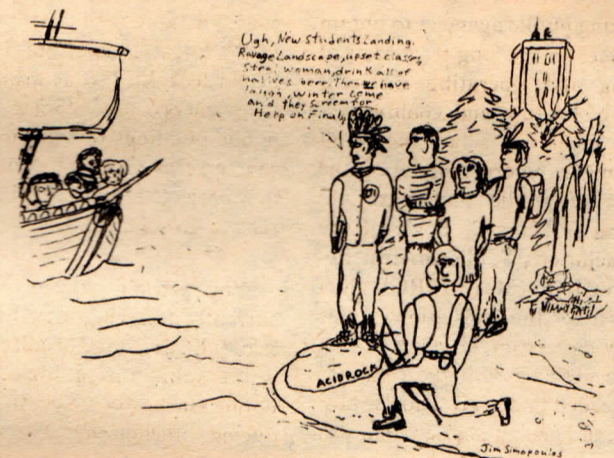 Ugh, New Students Landing.
Ravage Landscape, upset classes,
Steal woman, drink all of
natives beer. Then we have
laugh, winter come
and they Scream for
Help on Finals
ACID ROCK
Jim Simopoulos